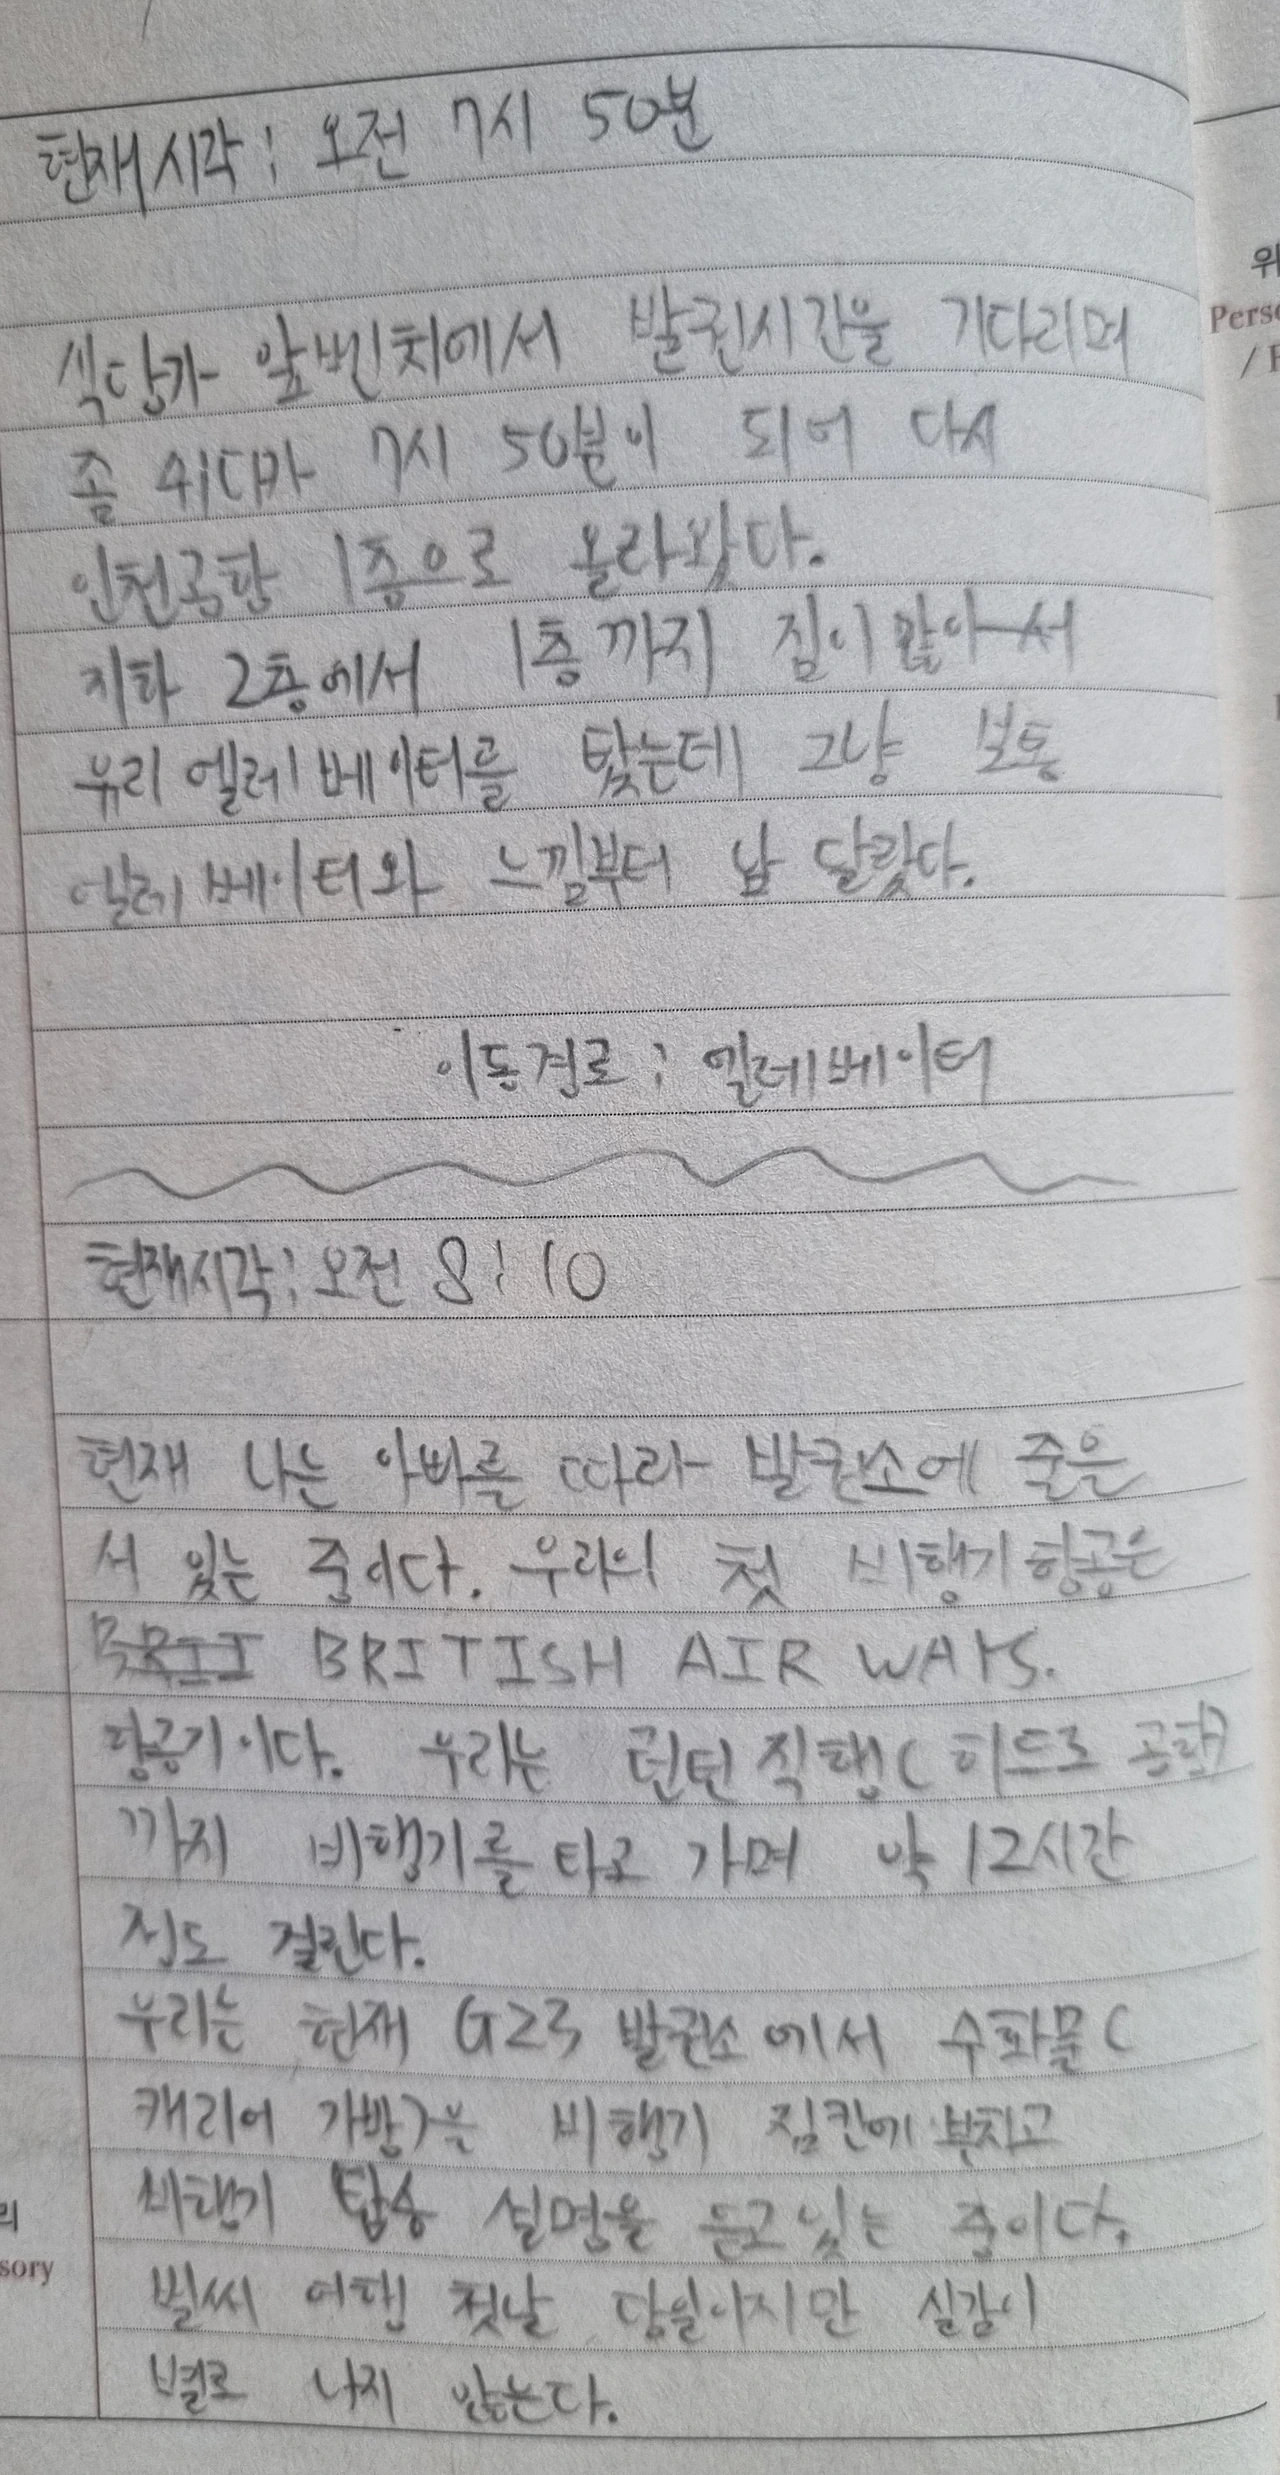 현재시각: 오전 7시 50분
식당가 앞벤치에서 발권시간을 기다리며
좀 쉬다가 7시 50분이 되어 다시
인천공항 1층으로 올라왔다.
지하 2층에서 1층까지 짐이 많아서
유리 엘레베이터를 탔는데 그냥 보통
엘레베이터와 느낌부터 달랐다.
이동경로: 엘레베이터
현재시각: 오전 8:10
현재 나는 아빠를 따라 발권소에 줄을
서 있는 중이다. 우리의 첫 비행기 항공은
BRITISH AIR WAYS.
항공기이다. 우리는 런던 직행( 히드로 공항)
까지 비행기를 타고 가며 약 12시간
정도 걸린다.
우리는 현재 G23 발권소에서 수화물(
캐리어 가방)을 비행기 짐칸에 부치고
비행기 탑승 설명을 듣고 있는 중이다.
벌써 여행 첫날 당일이지만 실감이
별로 나지 않는다.
위
Pers
리
sory